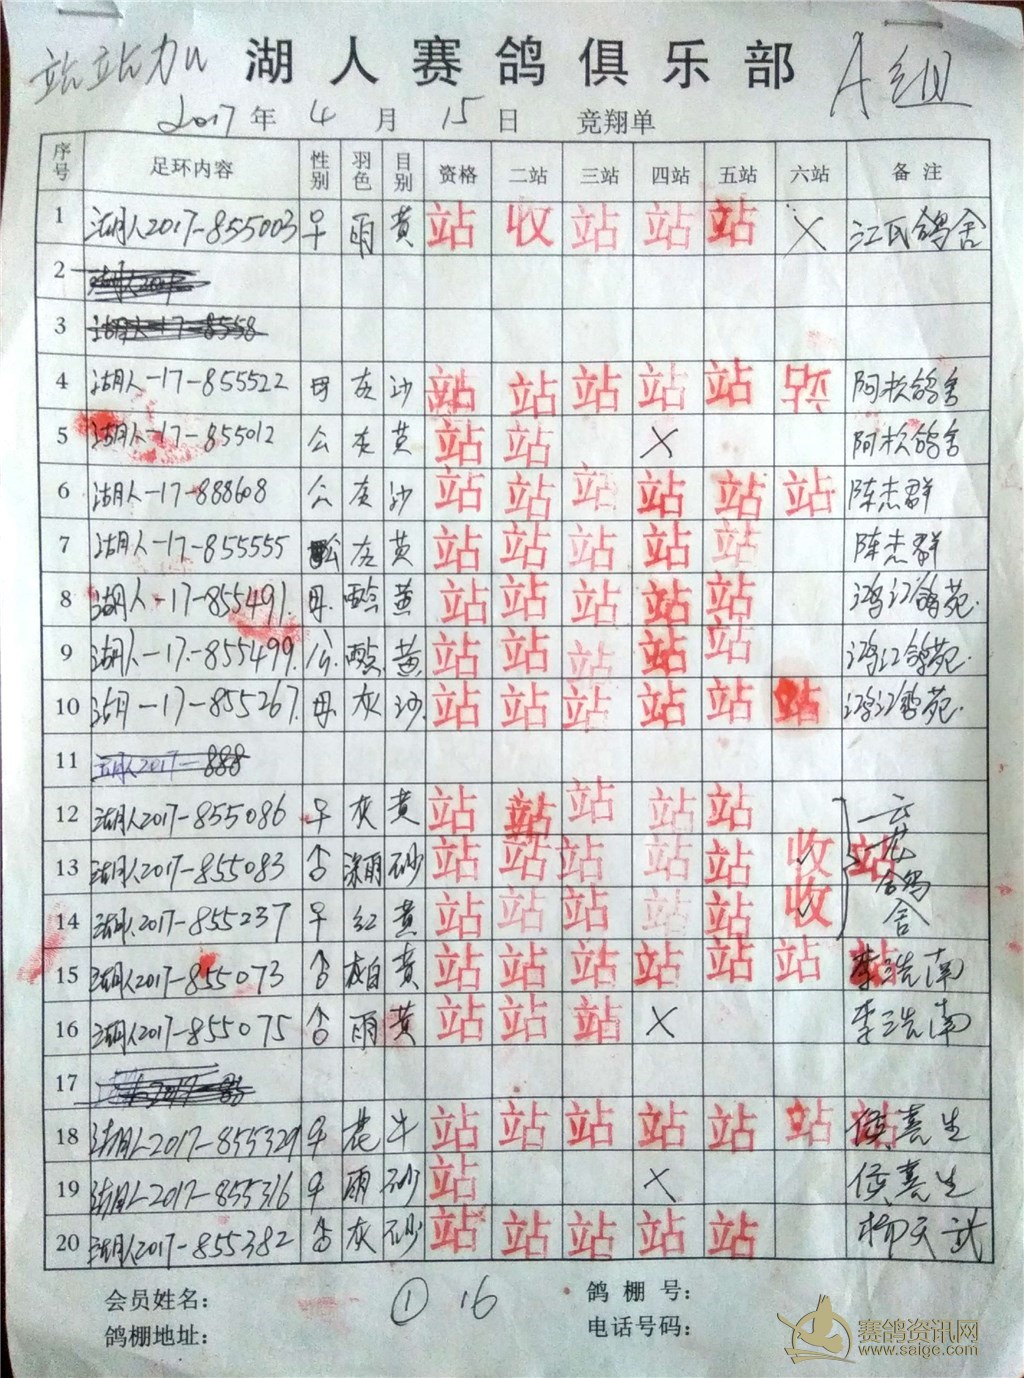 站站加 湖人赛鸽俱乐部 A组
2017年 4 月 15 日 竞翔单
序号 足环内容 性别 羽色 目别 资格 二站 三站 四站 五站 六站 备注
1 湖人2017-855003 早 雨 黄 站 收 站 站 站 × 江氏鸽舍
2
3 湖人-17-8558
4 湖人-17-855522 母 灰 沙 站 站 站 站 站 站 鸽舍
5 湖人-17-855012 公 灰 黄 站 站 × 鸽舍
6 湖人-17-888608 公 灰 沙 站 站 站 站 站 站 陈杰群
7 湖人-17-855555 公 灰 黄 站 站 站 站 站 陈杰群
8 湖人-17-855491. 母. 黄 站 站 站 站 站 鸿江鸽苑.
9 湖人-17-855499. 公. 黄 站 站 站 站 站 鸿江鸽苑.
10 湖人-17-855267. 母. 灰 沙. 站 站 站 站 站 站 鸿江鸽苑.
11 2017-888
12 湖人2017-855086 早 灰 黄 站 站 站 站 站
13 湖人2017-855083 深雨 砂 站 站 站 站 站 收 站 云龙鸽舍
14 湖人2017-855237 早 红 黄 站 站 站 站 站 收
15 湖人2017-855073 黄 站 站 站 站 站 站 站 李浩南
16 湖人2017-855075 雨 黄 站 站 站 × 李浩南
17
18 湖人2017-855329 早 花 牛 站 站 站 站 站 站 站 生
19 湖人2017-855316 早 雨 砂 站 × 生
20 湖人2017-855382 灰 砂 站 站 站 站 站 柳天武
会员姓名： ① 16 鸽棚号：
鸽棚地址： 电话号码：
赛鸽资讯网
www.saige.com